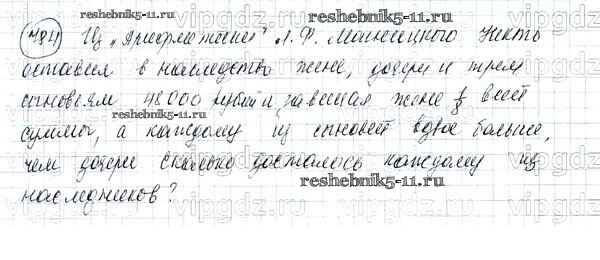 reshebnik5-11.ru
№841 Из "Арифметики" Л.Ф. Магницкого Некто
оставил в наследство жене, дочери и трем
сыновьям 48000 рублей и завещал жене 1/8 всей
суммы, а каждому из сыновей вдвое больше,
чем дочери Сколько досталось каждому из
наследников?
reshebnik5-11.ru
reshebnik5-11.ru
vipgdz.ru